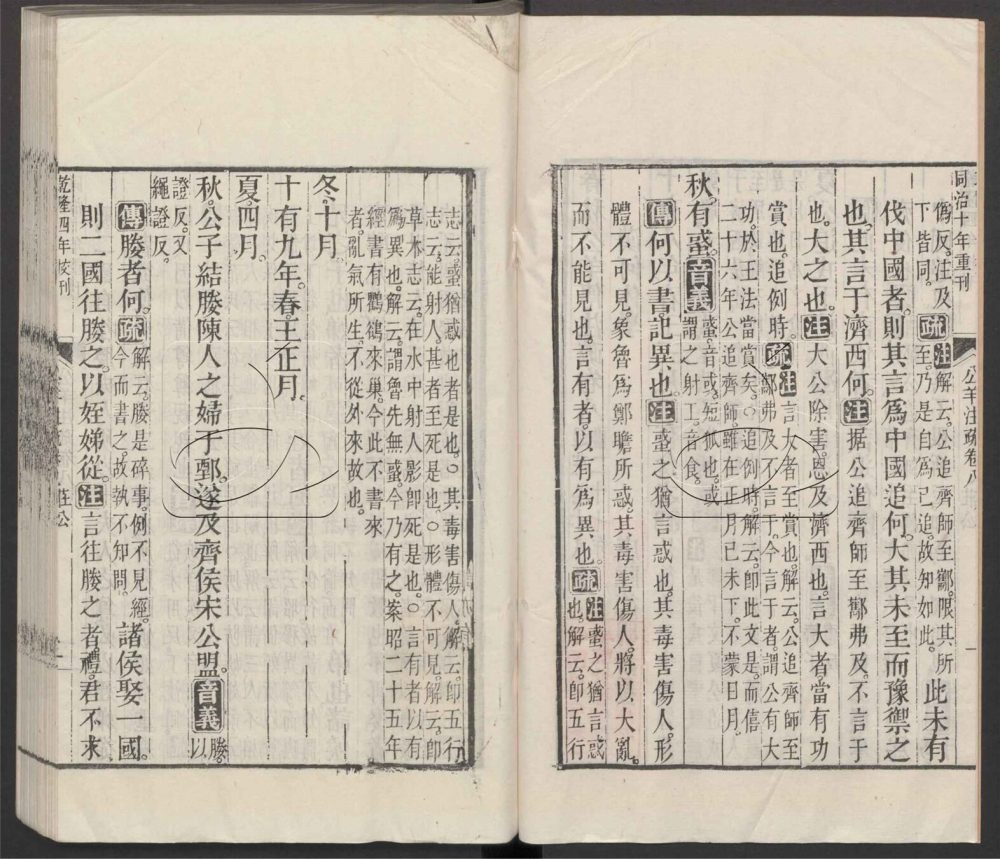 同治十年重刊
公羊注疏卷八
僞反。注及
下皆同。
疏注解云。公追齊師至酅。限其所
至。乃是自爲已追。故知如此。
此未有
伐中國者。則其言爲中國追何。大其未至而豫禦之
也。其言于濟西何。注据公追齊師至酅弗及。不言于
也。大之也。注大公除害。恩及濟西也。言大者當有功
賞也。追例時。疏
注言大者至賞也。解云。公追齊師至
酅弗及不言于。今言于者。謂公有大
功。於王法當賞矣。○追例時。解云。即此文是。而僖
二十六年公追齊師。雖在正月已未下。不蒙日月。
秋。有蜮。音義
蜮。音或。短狐也。或
謂之射工。音食。
傳何以書。記異也。注蜮之猶言惑也。其毒害傷人。形
體不可見。象魯爲鄭瞻所惑。其毒害傷人。將以大亂
而不能見也。言有者。以有爲異也。疏
注蜮之猶言惑
也。解云。即五行
志云。蜮猶惑也者是也。○其毒害傷人。解云。即五行
志云。能射人。甚者至死是也。○形體不可見。解云。即
草木志云。在水中射人影即死是也。○言有者以有
爲異也。解云。謂魯先無蜮。今乃有之。案昭二十五年
經書有鸜鵒來巢。今此不書來
者。亂氣所生。不從外來故也。
冬。十月。
十有九年。春。王正月。
夏。四月。
秋。公子結媵陳人之婦于鄄。遂及齊侯宋公盟。音義
媵。以
證反。又
繩證反。
傳媵者何。疏
解云。媵是碎事。例不見經。
今而書之。故執不知問。
諸侯娶一國。
則二國往媵之。以姪娣從。注言往媵之者。禮。君不求
乾隆四年校刊
莊公